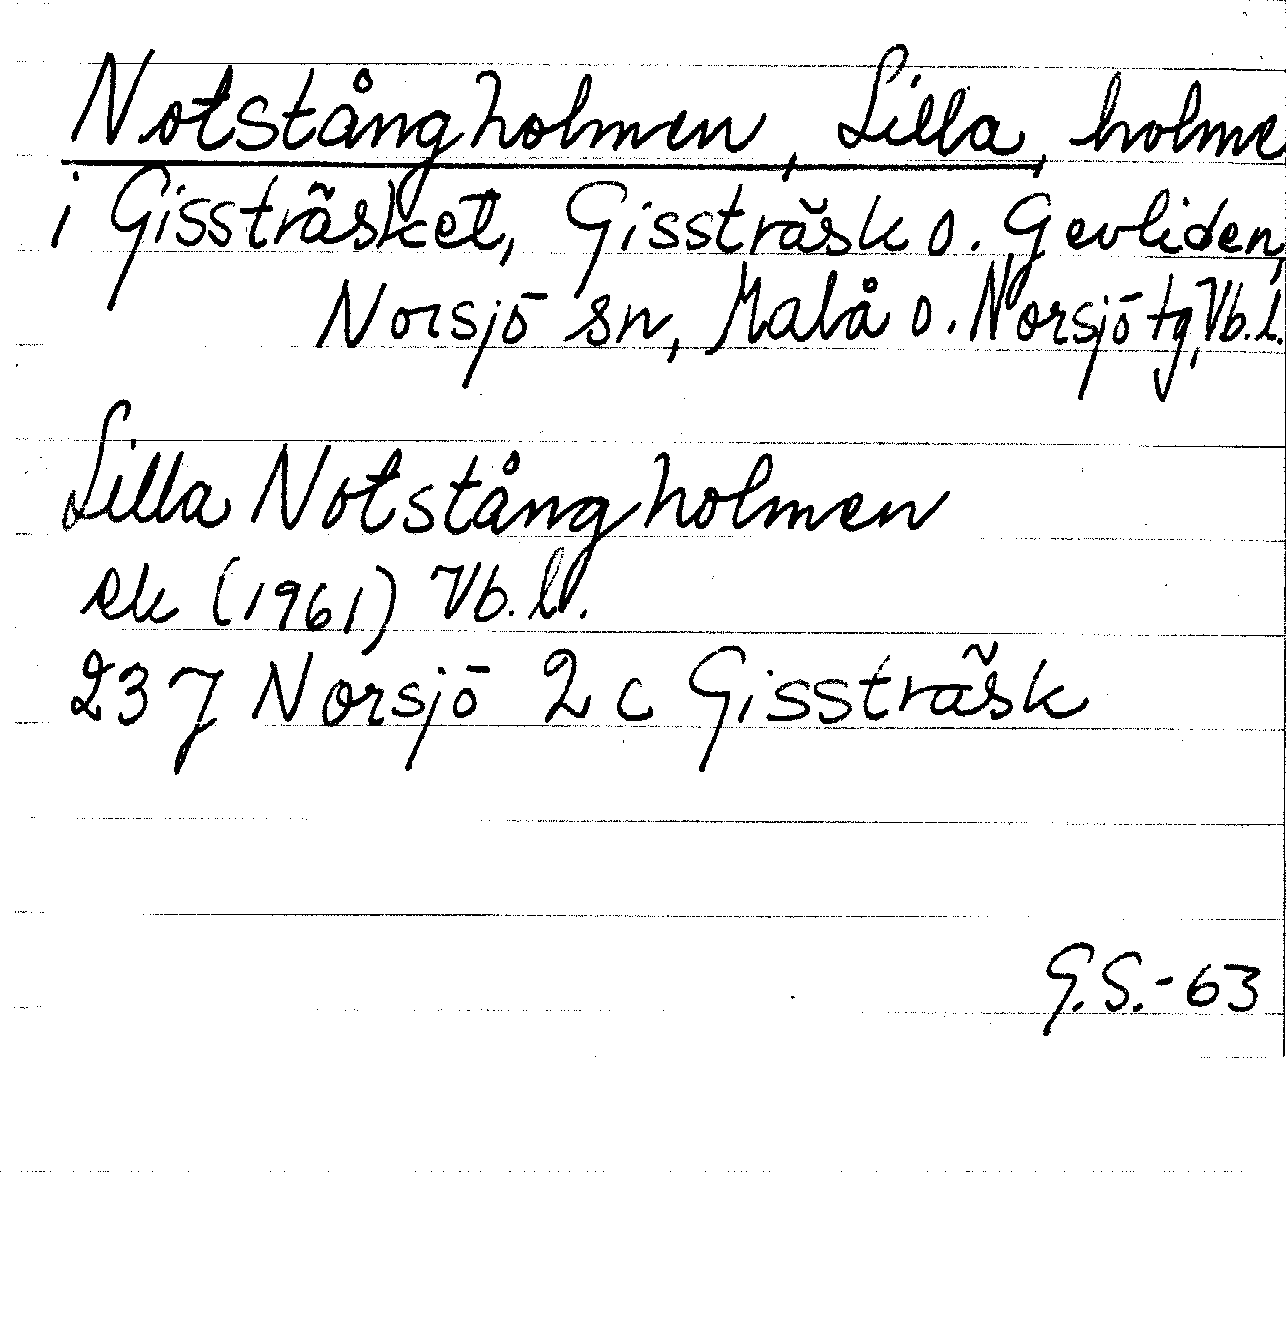 Notstångholmen, Lilla, holme
i Gissträsket, Gissträsk o. Gevliden,
Norsjö sn, Malå o. Norsjö tg, Vb. l.
Lilla Notstångholmen
ek (1961) Vb. l.
23 J Norsjö 2 c Gissträsk
G.S.-63